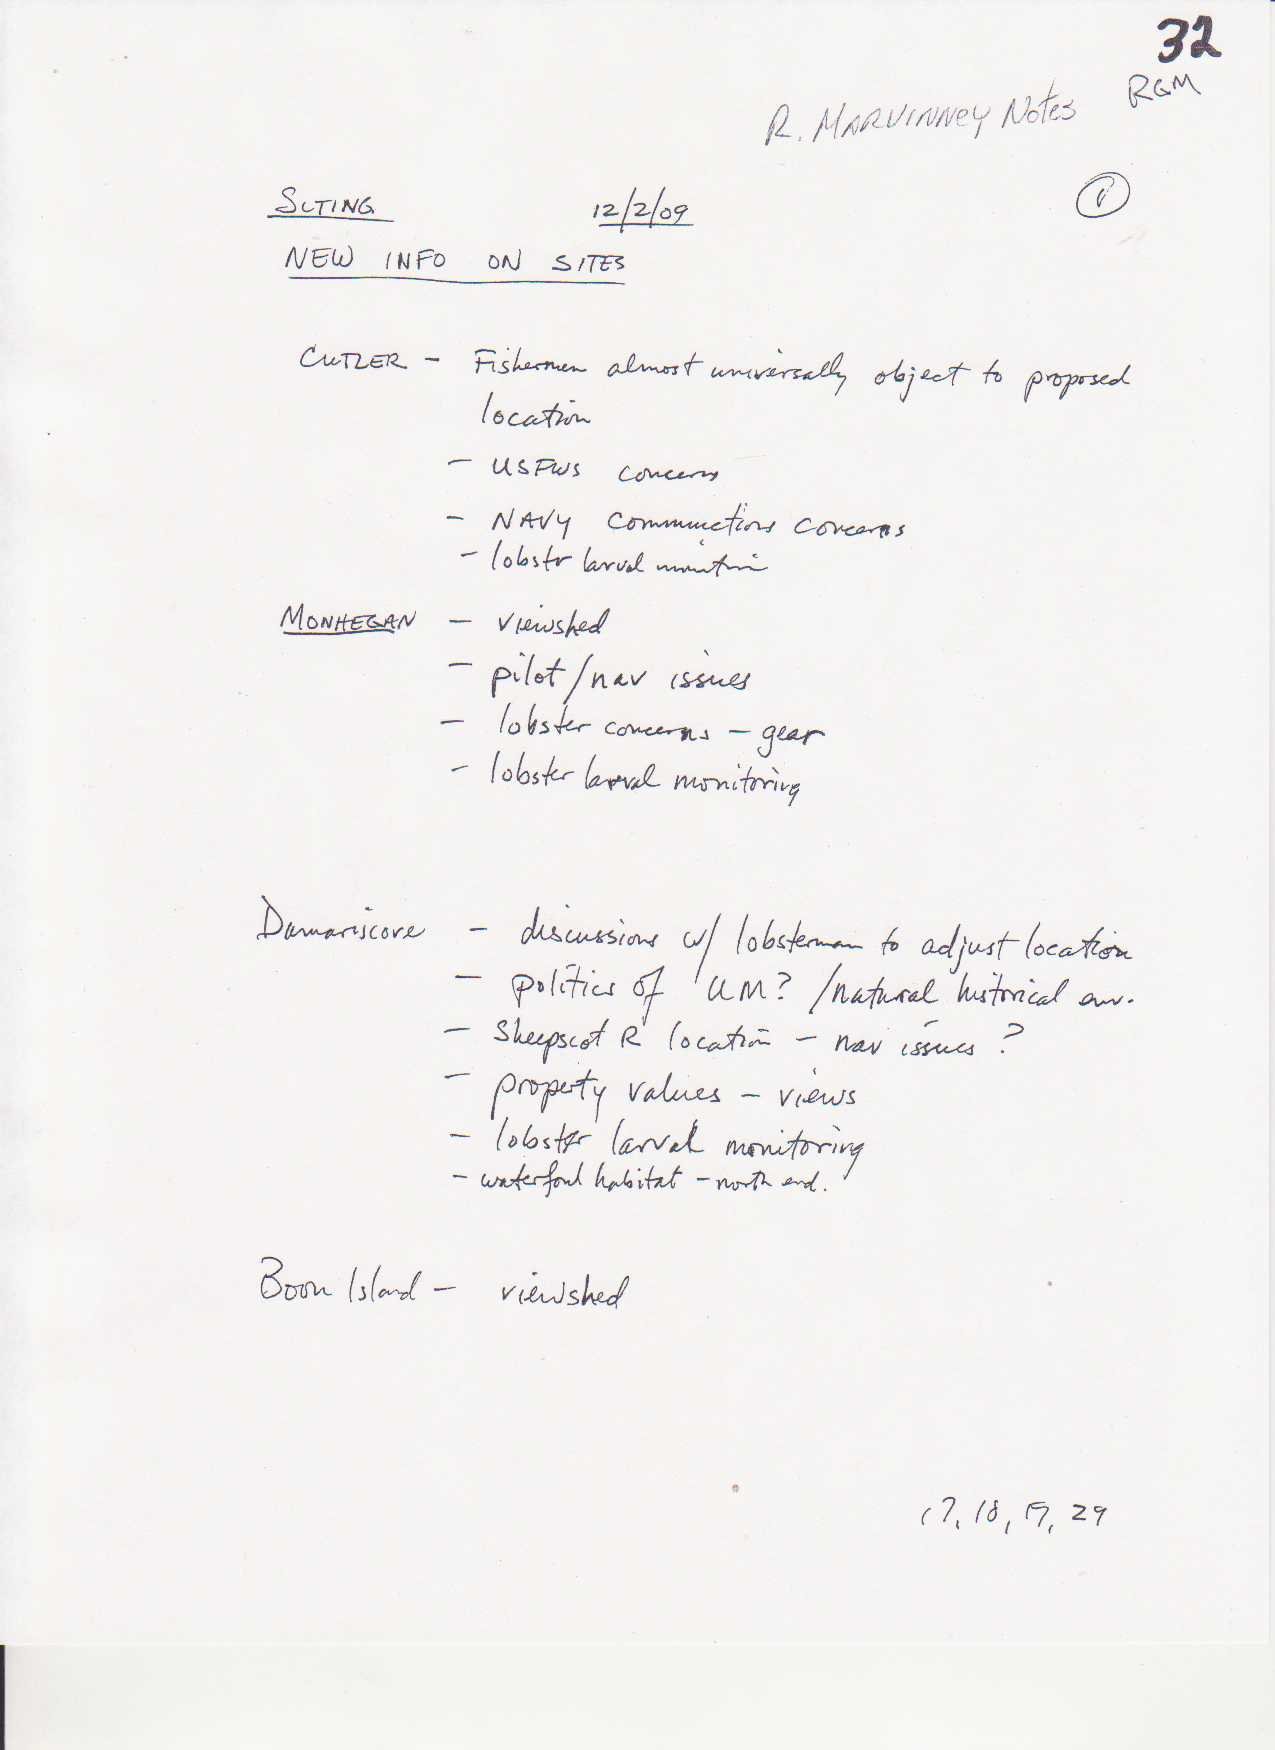 32
RGM
R. MARVINNEY Notes
SITING 12/2/09 1
NEW INFO ON SITES
CUTLER - Fishermen almost universally object to proposed
location
- USFWS concerns
- NAVY communictions concerns
- lobstr larval monitorin
MONHEGAN - viewshed
- pilot/nav issues
- lobster concerns - gear
- lobster larval monitoring
Damariscove - discussions w/ lobsterman to adjust location
- politics of UM? /natural historical env.
- Sheepscot R location - nav issues ?
- property values - views
- lobster larval monitoring
- waterfowl habitat - north end.
Boon Island - viewshed
17, 18, 19, 29